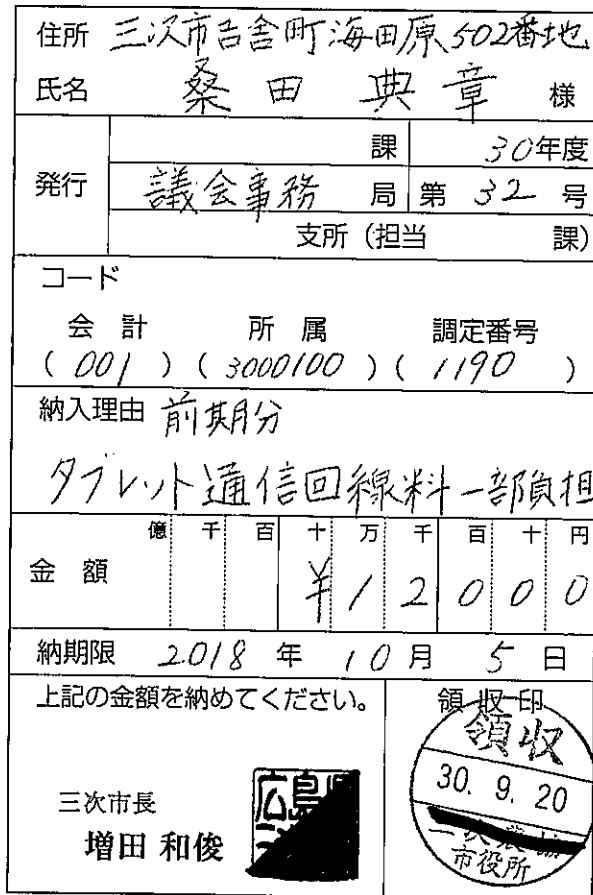 住所 三次市吉舎町海田原502番地
氏名 桑田典章 様
課 30年度
発行 議会事務 局 第 32 号
支所(担当 課)
コード
会計 所属 調定番号
( 001 ) ( 3000100 ) ( 1190 )
納入理由 前期分
タブレット通信回線料一部負担
億 千 百 十 万 千 百 十 円
金額 ¥12000
納期限 2018 年 10 月 5 日
上記の金額を納めてください。
領収印
領収
30. 9. 20
市役所
三次市長
増田 和俊
広島